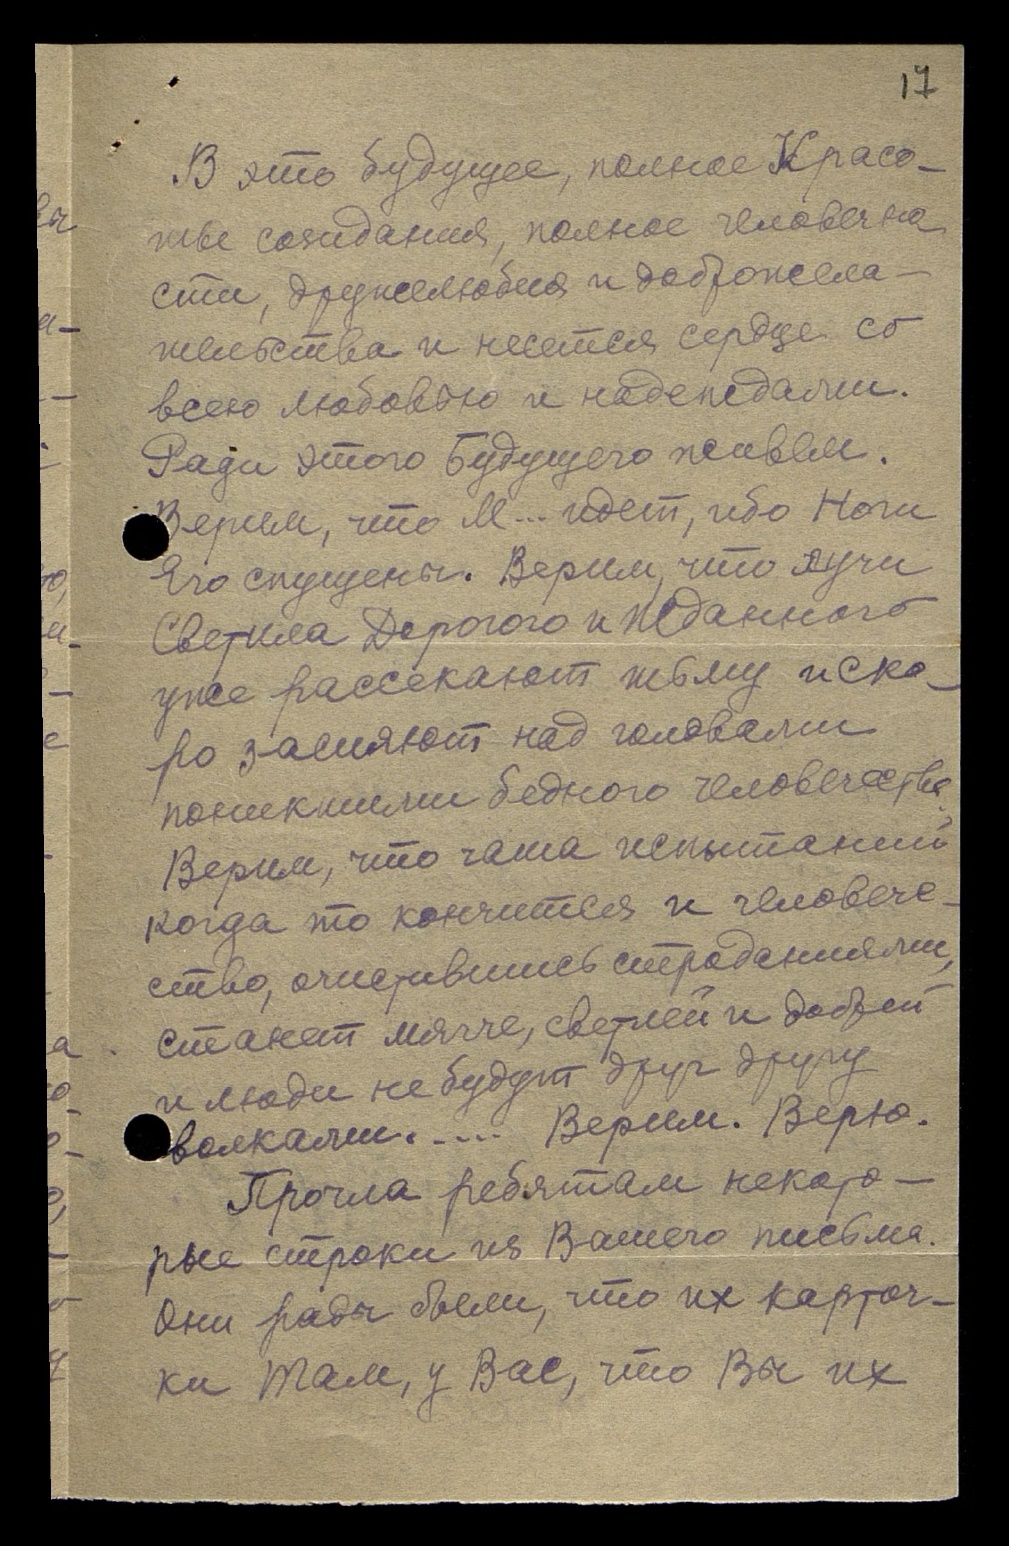 17
В это будущее, полное Красо-
ты созидания, полное человечно
сти, дружелюбия и доброжела-
тельства и несется сердце со
всею любовью и надеждами.
Ради этого Будущего живем.
Верим, что М... идет, ибо Ноги
Его спущены. Верим, что лучи
Светила Дорогого и Жданного
уже рассекают тьму и ско-
ро засияют над головами
поникшими бедного человечества.
Верим, что чаша испытаний
когда то кончится и человече-
ство, очистившись страданиями,
станет мягче, светлей и добрей
и люди не будут друг другу
волками..... Верим. Верю.
Прочла ребятам некото-
рые строки из Вашего письма.
Они рады были, что их карточ-
ки там, у Вас, что Вы их